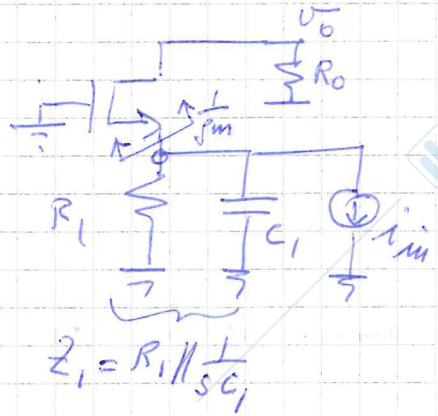 v₀
R₀
1/gm
R₁
C₁
i_in
Z₁ = R₁ || 1/sC₁